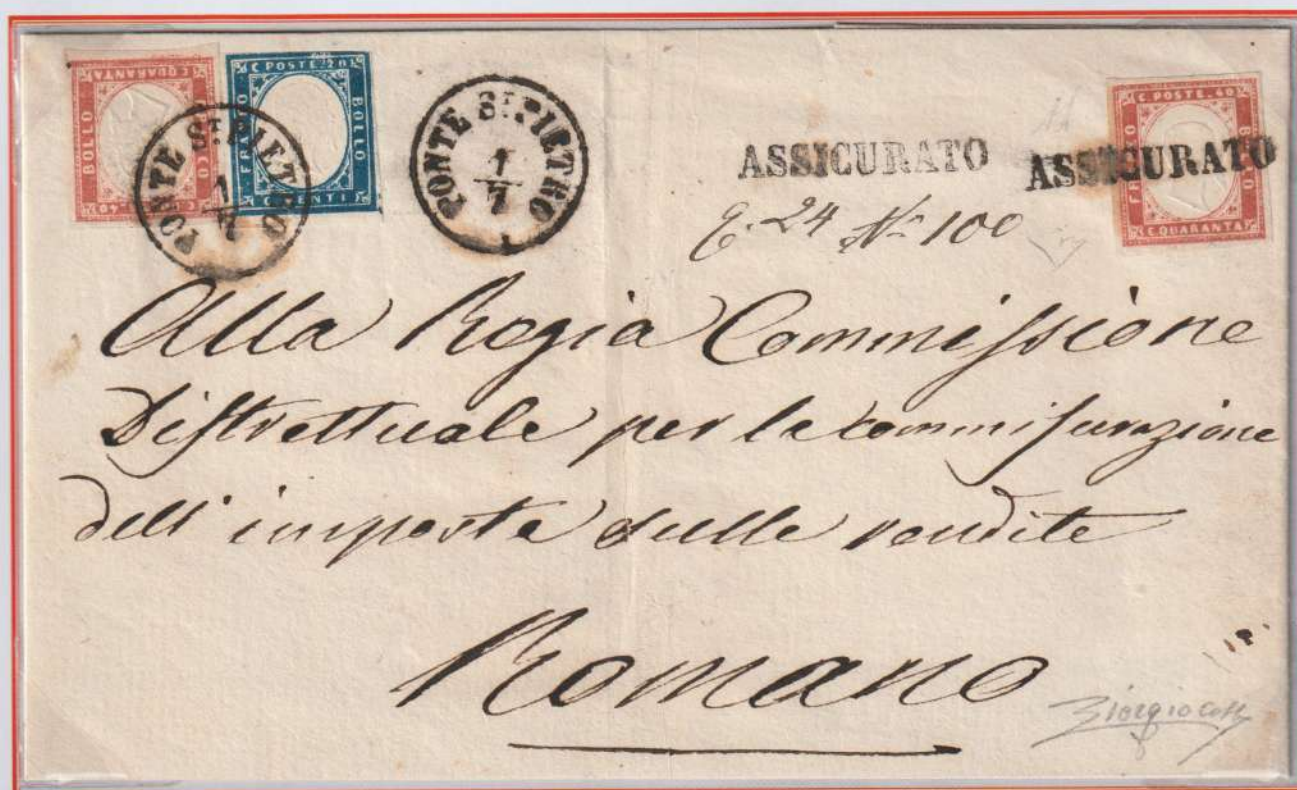 C. QUARANTA
BOLLO
FRANCO
C. POSTE 40
C. POSTE 20
FRANCO
BOLLO
C. VENTI
PONTE S. PIETRO
1
7
PONTE S. PIETRO
1
7
ASSICURATO
N. 100
C. POSTE 40
FRANCO
BOLLO
C. QUARANTA
ASSICURATO
Alla Regia Commissione
Distrettuale per la commisurazione
dell'imposta sulle rendite
Romano